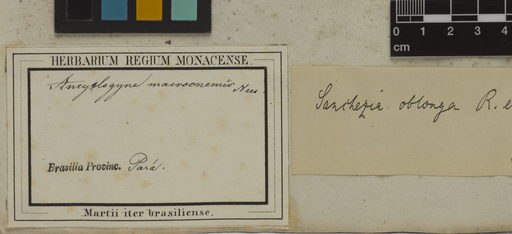 HERBARIUM REGIUM MONACENSE.
Ancylogyne macrocnemis Nees.
Brasilia Provinc. Pará.
Martii iter brasiliense.
Sanchezia oblonga R. e
0 1 2 3 4 5
cm